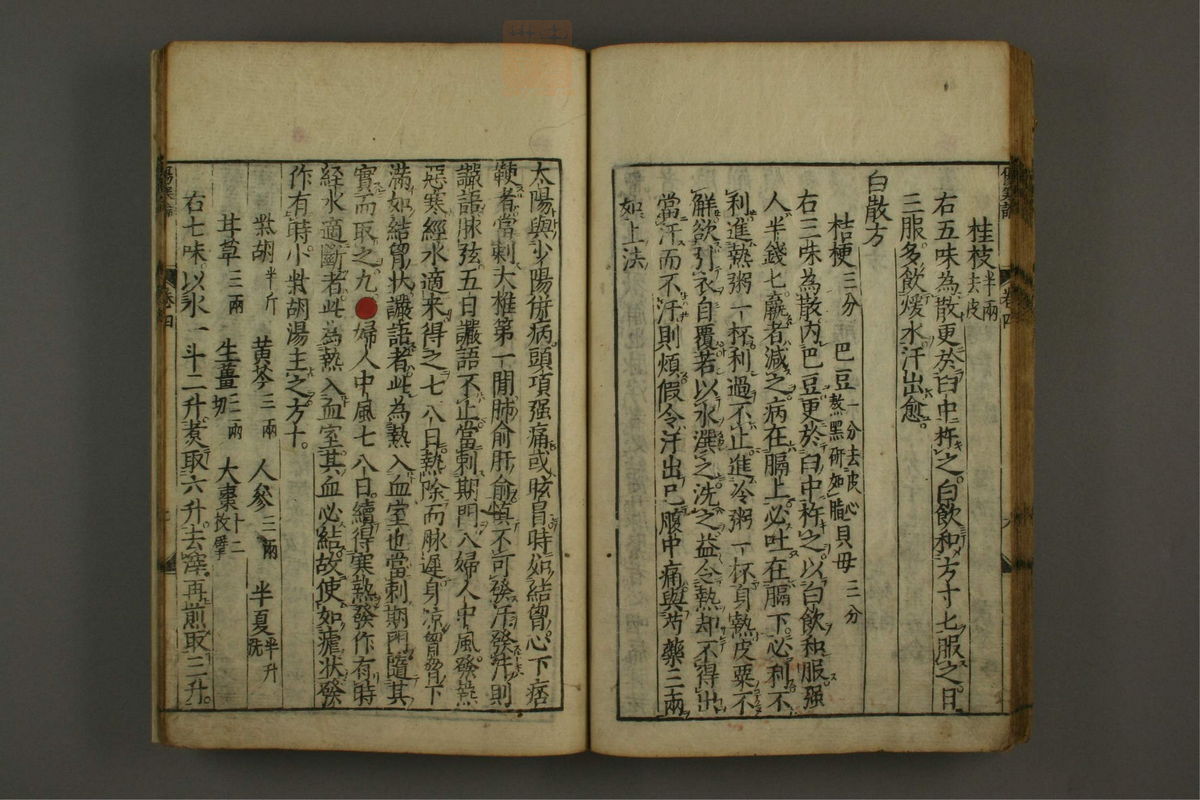 桂枝半兩去皮
右五味為散更於臼中杵之白飲和方寸匕服之日
三服多飲煖水汗出愈
白散方
桔梗三分 巴豆一分去皮心熬黑研如脂 貝母三分
右三味為散內巴豆更於臼中杵之以白飲和服强
人半錢匕羸者減之病在膈上必吐在膈下必利不
利進熱粥一杯利過不止進冷粥一杯身熱皮粟不
解欲引衣自覆若以水潠之洗之益令熱却不得出
當汗而不汗則煩假令汗出已腹中痛與芍藥三兩
如上法
太陽與少陽併病頭項强痛或眩冒時如結胷心下痞
鞕者當刺大椎第一間肺俞肝俞慎不可發汗發汗則
讝語脉弦五日讝語不止當刺期門八婦人中風發熱
惡寒經水適来得之七八日熱除而脉遲身凉胷脅下
滿如結胷状讝語者此為熱入血室也當刺期門隨其
實而取之九●婦人中風七八日續得寒熱發作有時
経水適斷者此為熱入血室其血必結故使如瘧状發
作有時小柴胡湯主之方十
柴胡半斤 黄芩三兩 人參三兩 半夏半升洗
甘草三兩 生薑三兩切 大棗十二枚擘
右七味以水一斗二升煮取六升去滓再煎取三升
卷四